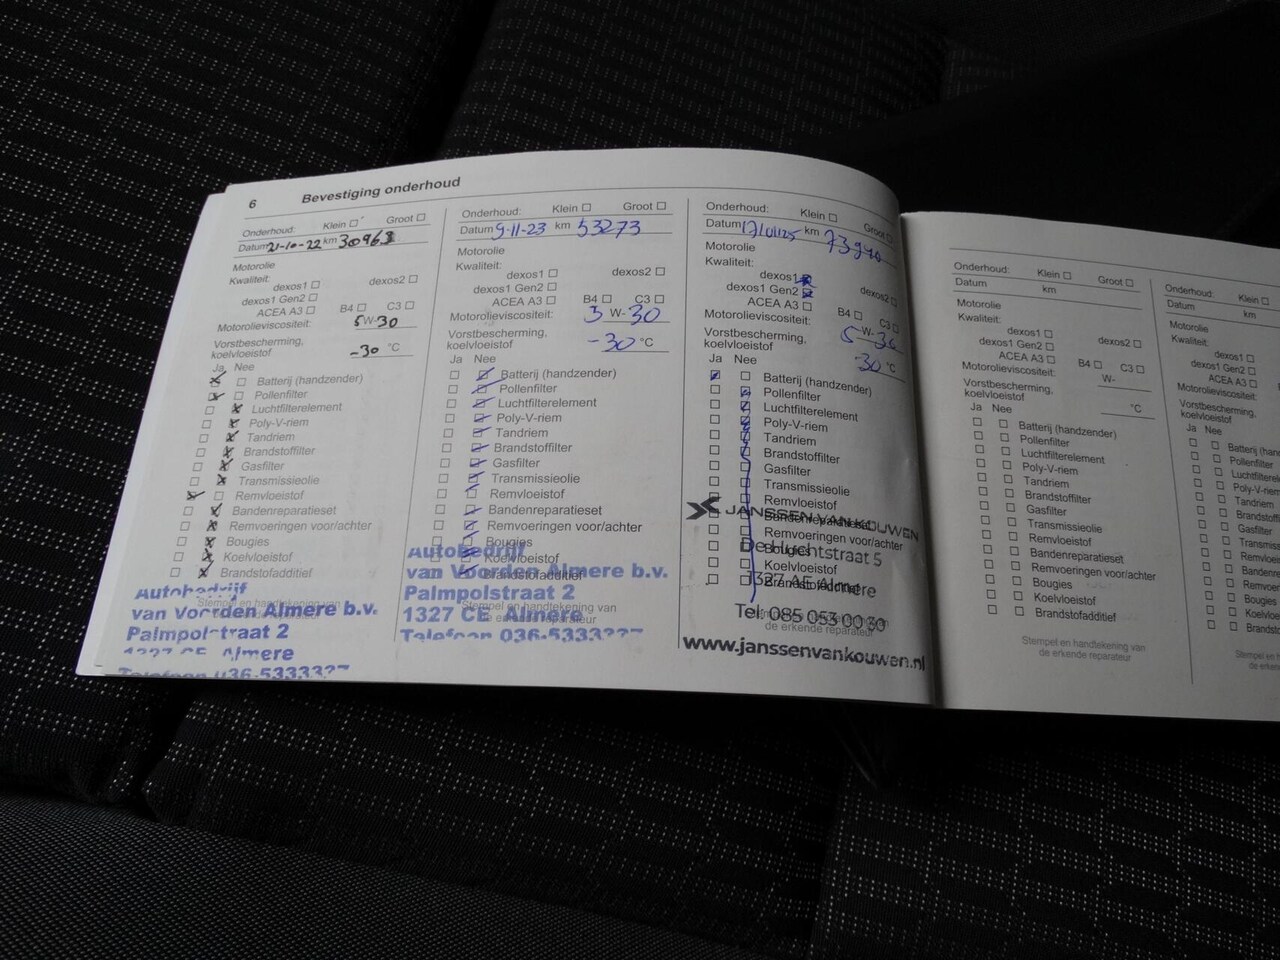 6 Bevestiging onderhoud
Onderhoud: Klein ☐ Groot ☐
Datum 21-10-22 km 30963
Motorolie
Kwaliteit:
dexos1 ☐ dexos2 ☐
dexos1 Gen2 ☐
ACEA A3 ☐ B4 ☐ C3 ☐
Motorolieviscositeit: 5W-30
Vorstbescherming,
koelvloeistof -30 °C
Ja Nee
Batterij (handzender)
Pollenfilter
Luchtfilterelement
Poly-V-riem
Tandriem
Brandstoffilter
Gasfilter
Transmissieolie
Remvloeistof
Bandenreparatieset
Remvoeringen voor/achter
Bougies
Koelvloeistof
Brandstofadditief
Stempel en handtekening van
Autobedrijf
van Voorden Almere b.v.
Palmpolstraat 2
1327 CE Almere
Telefoon 036-5333327
Onderhoud: Klein ☐ Groot ☐
Datum 9-11-23 km 53273
Motorolie
Kwaliteit:
dexos1 ☐ dexos2 ☐
dexos1 Gen2 ☐
ACEA A3 ☐ B4 ☐ C3 ☐
Motorolieviscositeit: 5 W-30
Vorstbescherming,
koelvloeistof -30 °C
Ja Nee
Batterij (handzender)
Pollenfilter
Luchtfilterelement
Poly-V-riem
Tandriem
Brandstoffilter
Gasfilter
Transmissieolie
Remvloeistof
Bandenreparatieset
Remvoeringen voor/achter
Bougies
Koelvloeistof
Brandstofadditief
Stempel en handtekening van
de erkende reparateur
Autobedrijf
van Voorden Almere b.v.
Palmpolstraat 2
1327 CE Almere
Telefoon 036-5333327
Onderhoud: Klein ☐ Groot
Datum 17/01/25 km
Motorolie
Kwaliteit:
dexos1 dexos2 ☐
dexos1 Gen2
ACEA A3 ☐ B4 ☐ C3 ☐
Motorolieviscositeit: 5 W-30
Vorstbescherming,
koelvloeistof -30 °C
Ja Nee
Batterij (handzender)
Pollenfilter
Luchtfilterelement
Poly-V-riem
Tandriem
Brandstoffilter
Gasfilter
Transmissieolie
Remvloeistof
Bandenreparatieset
Remvoeringen voor/achter
Bougies
Koelvloeistof
Brandstofadditief
de erkende reparateur
JANSSEN VAN KOUWEN
De Huchtstraat 5
1327 AE Almere
Tel. 085 053 00 30
www.janssenvankouwen.nl
Onderhoud: Klein ☐ Groot ☐
Datum km
Motorolie
Kwaliteit:
dexos1 ☐ dexos2 ☐
dexos1 Gen2 ☐
ACEA A3 ☐ B4 ☐ C3 ☐
Motorolieviscositeit: W-
Vorstbescherming,
koelvloeistof °C
Ja Nee
☐ ☐ Batterij (handzender)
☐ ☐ Pollenfilter
☐ ☐ Luchtfilterelement
☐ ☐ Poly-V-riem
☐ ☐ Tandriem
☐ ☐ Brandstoffilter
☐ ☐ Gasfilter
☐ ☐ Transmissieolie
☐ ☐ Remvloeistof
☐ ☐ Bandenreparatieset
☐ ☐ Remvoeringen voor/achter
☐ ☐ Bougies
☐ ☐ Koelvloeistof
☐ ☐ Brandstofadditief
Stempel en handtekening van
de erkende reparateur
Onderhoud: Klein ☐
Datum km
Motorolie
Kwaliteit:
dexos1 ☐
dexos1 Gen2 ☐
ACEA A3 ☐
Motorolieviscositeit:
Vorstbescherming,
koelvloeistof
Ja Nee